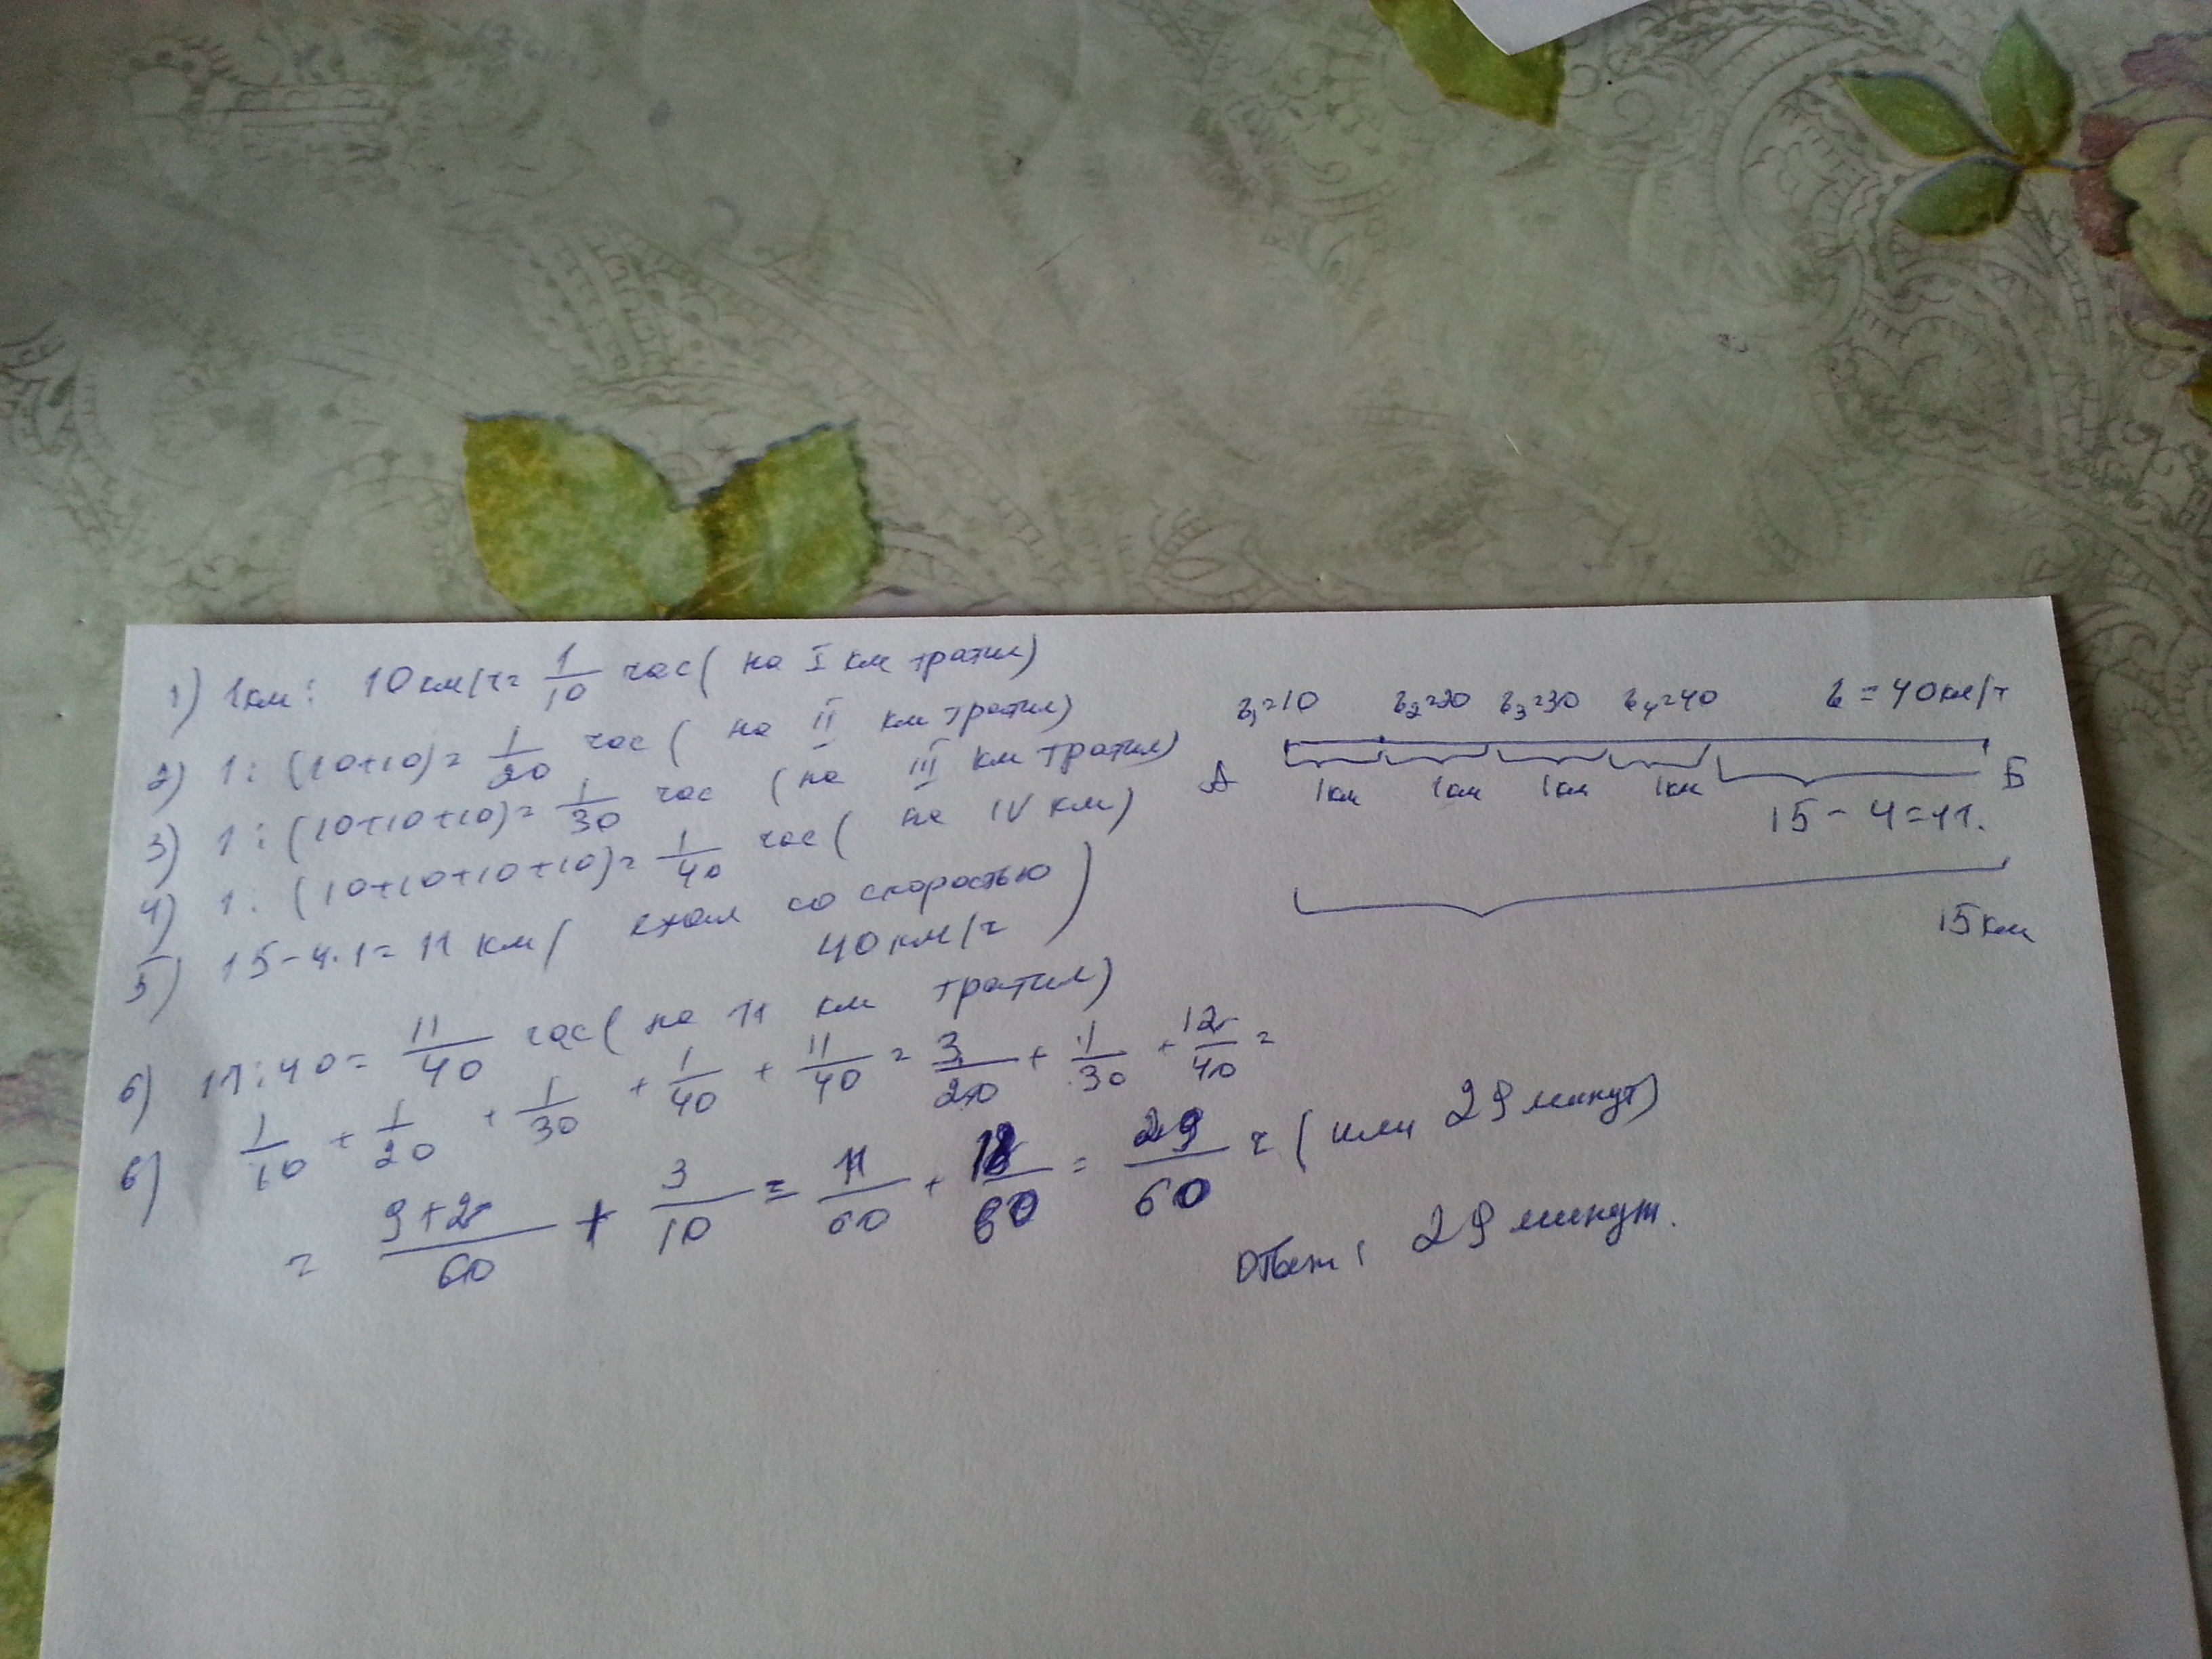 1) 1км : 10 км/ч = 1/10 час ( на I км тратил)
2) 1 : (10+10) = 1/20 час ( на II км тратил)
3) 1 : (10+10+10) = 1/30 час ( на III км тратил)
4) 1 : (10+10+10+10) = 1/40 час ( на IV км)
5) 15 - 4·1 = 11 км ( ехал со скоростью
40 км/ч )
6) 11 : 40 = 11/40 час ( на 11 км тратил)
6) 1/10 + 1/20 + 1/30 + 1/40 + 11/40 = 3/20 + 1/30 + 12/40 =
= 9+2/60 + 3/10 = 11/60 + 18/60 = 29/60 ч ( или 29 минут)
Ответ : 29 минут.
v₁=10 v₂=20 v₃=30 v₄=40 v = 40км/ч
А 1км 1км 1км 1км Б
15 - 4 = 11.
15 км